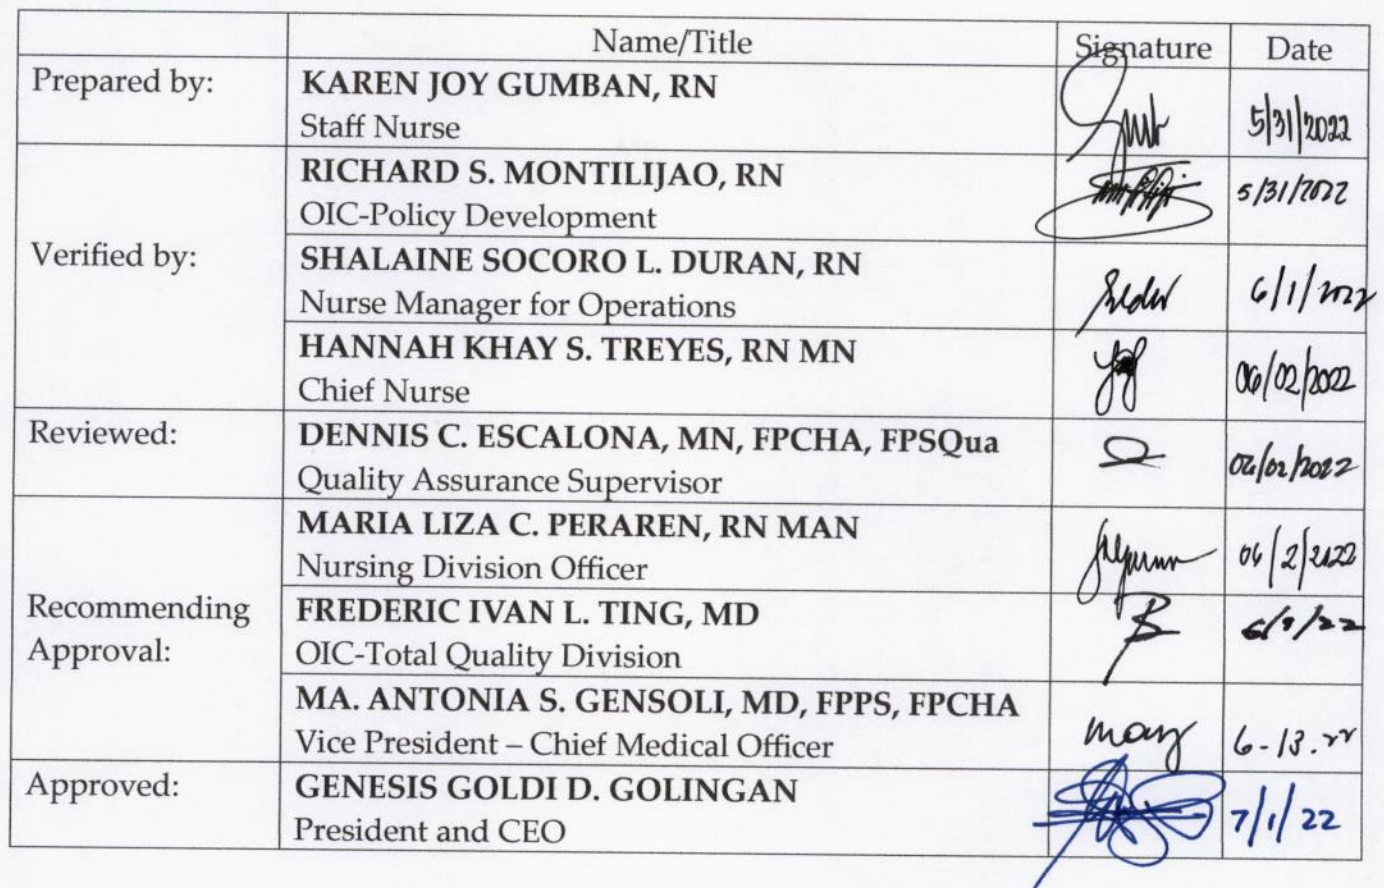 Name/Title Signature Date
Prepared by: KAREN JOY GUMBAN, RN
Staff Nurse 5/31/2022
RICHARD S. MONTILIJAO, RN
OIC-Policy Development 5/31/2022
Verified by: SHALAINE SOCORO L. DURAN, RN
Nurse Manager for Operations 6/1/2022
HANNAH KHAY S. TREYES, RN MN
Chief Nurse 06/02/2022
Reviewed: DENNIS C. ESCALONA, MN, FPCHA, FPSQua
Quality Assurance Supervisor 06/02/2022
MARIA LIZA C. PERAREN, RN MAN
Nursing Division Officer 06/2/2022
Recommending FREDERIC IVAN L. TING, MD
Approval: OIC-Total Quality Division
MA. ANTONIA S. GENSOLI, MD, FPPS, FPCHA
Vice President – Chief Medical Officer 6-13.22
Approved: GENESIS GOLDI D. GOLINGAN
President and CEO 7/1/22